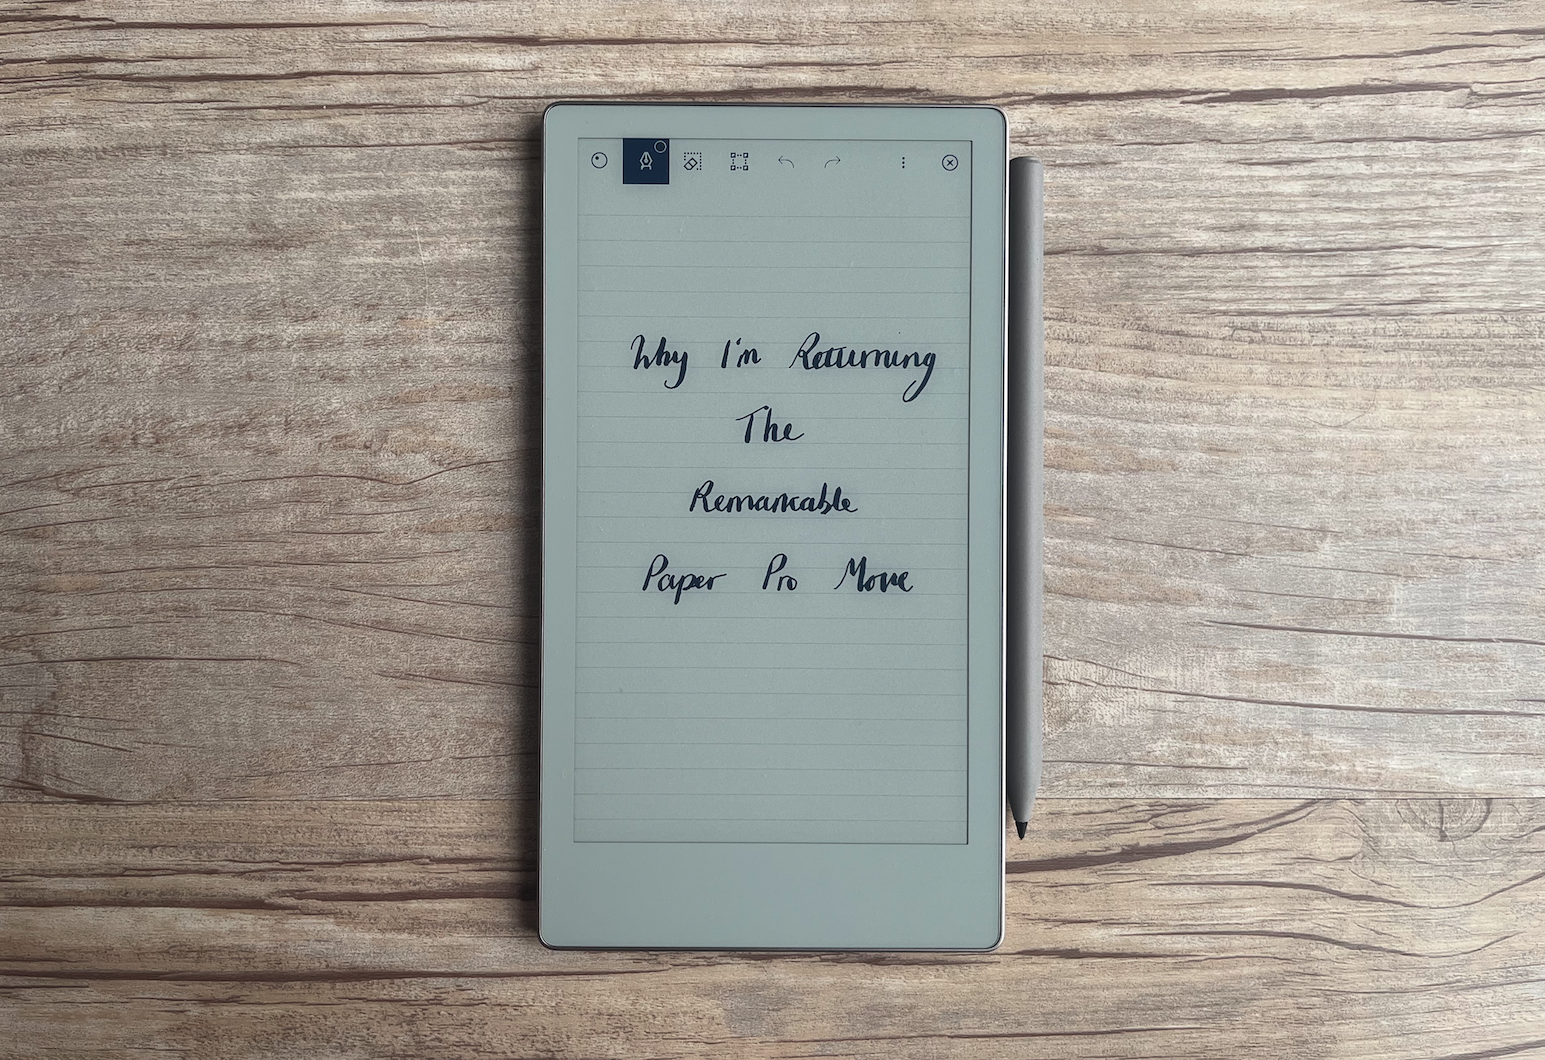 Why I'm Returning
The
Remarkable
Paper Pro Move